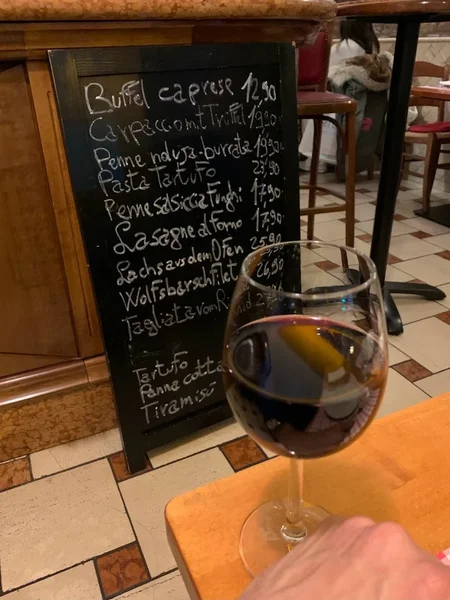 Büffel caprese 12,90
Carpaccio mit Trüffel 19,20
Penne nduja-burrata 19,90
Pasta Tartufo 23,90
Penne salsiccia Funghi 17,90
Lasagne al Forno 17,90
Lachs aus dem Ofen 25,90
Wolfsbarschfilet 26,90
Tagliata vom
Tartufo
Panna cotta
Tiramisù